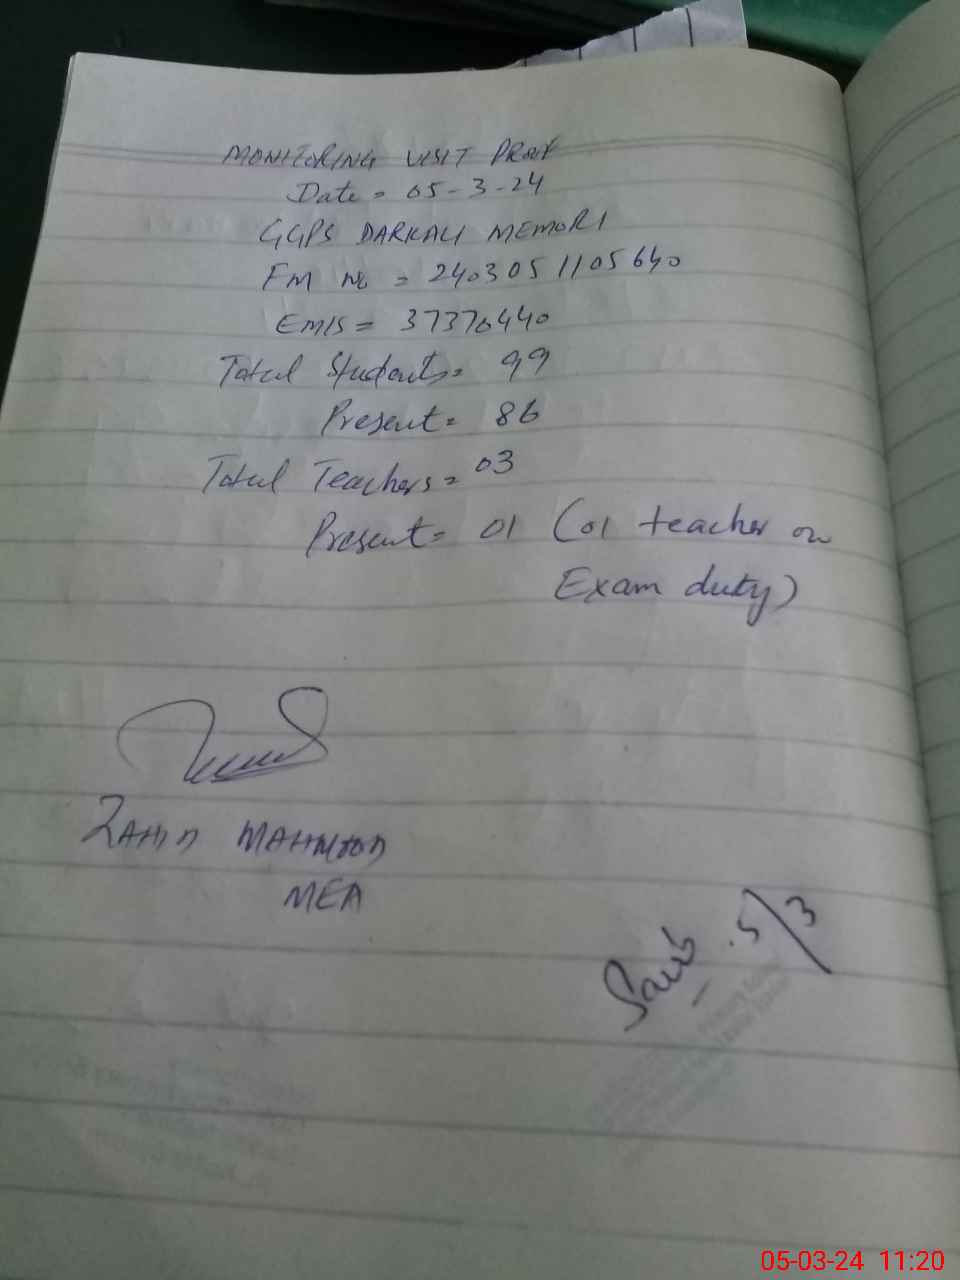 MONITORING VISIT PROOF
Date = 05-3-24
GGPS DARKALI MEMORI
FM no = 2403051105640
EMIS = 37370440
Total Students = 99
Present = 86
Total Teachers = 03
Present = 01 (01 teacher on
Exam duty)
ZAHID MAHMOOD
MEA
5/3
05-03-24 11:20